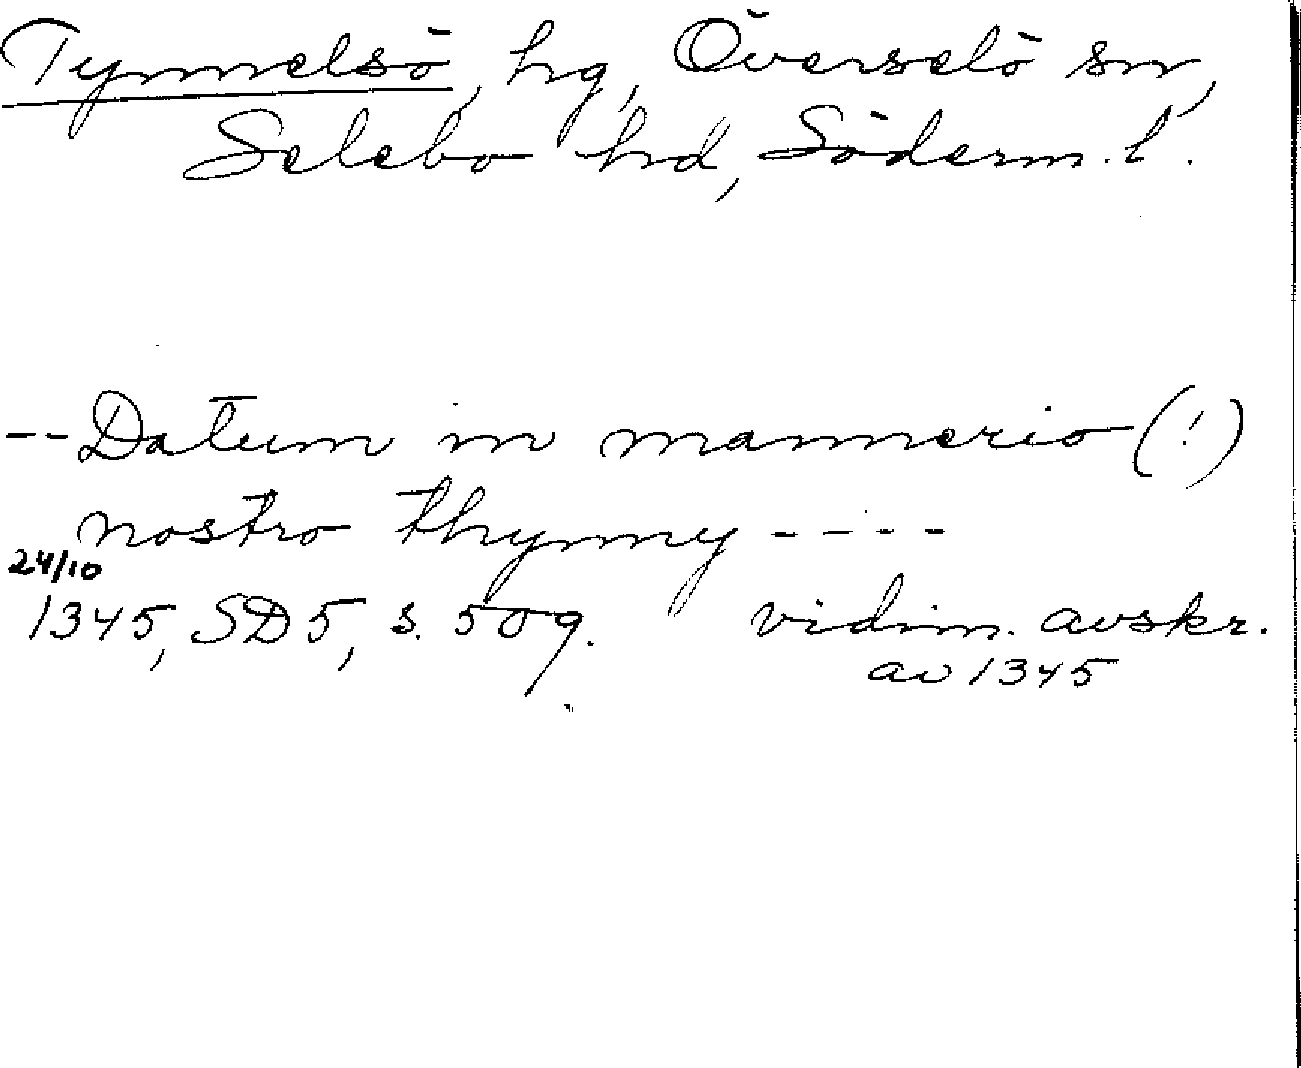 Tynnelsö, hg, Överselö sn,
Selebo hd, Söderm. l.
-- Datum in mannerio (!)
nostro thynny ----
24/10
1345, SD 5, s. 509. vidim. avskr.
av 1345